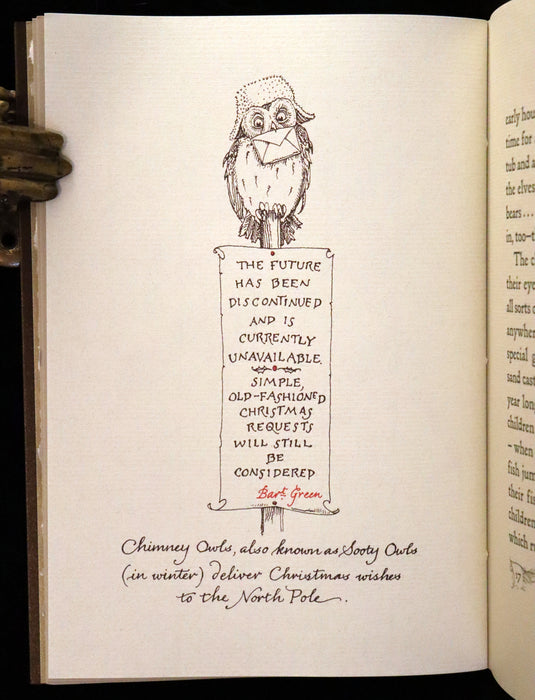 THE FUTURE
HAS BEEN
DISCONTINUED
AND IS
CURRENTLY
UNAVAILABLE.
SIMPLE,
OLD-FASHIONED
CHRISTMAS
REQUESTS
WILL STILL
BE
CONSIDERED
Bart. Green
Chimney Owls, also known as Sooty Owls
(in winter) deliver Christmas wishes
to the North Pole.
early hou
time for
tub and a
the elves
bears . . .
in, too—t
The c
their eye
all sorts o
anywher
special g
sand cast
year long
children
– when
fish jum
their fis
children
which r
17